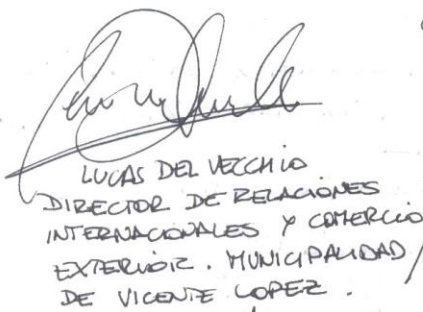 LUCAS DEL VECCHIO
DIRECTOR DE RELACIONES
INTERNACIONALES Y COMERCIO
EXTERIOR. MUNICIPALIDAD
DE VICENTE LOPEZ.